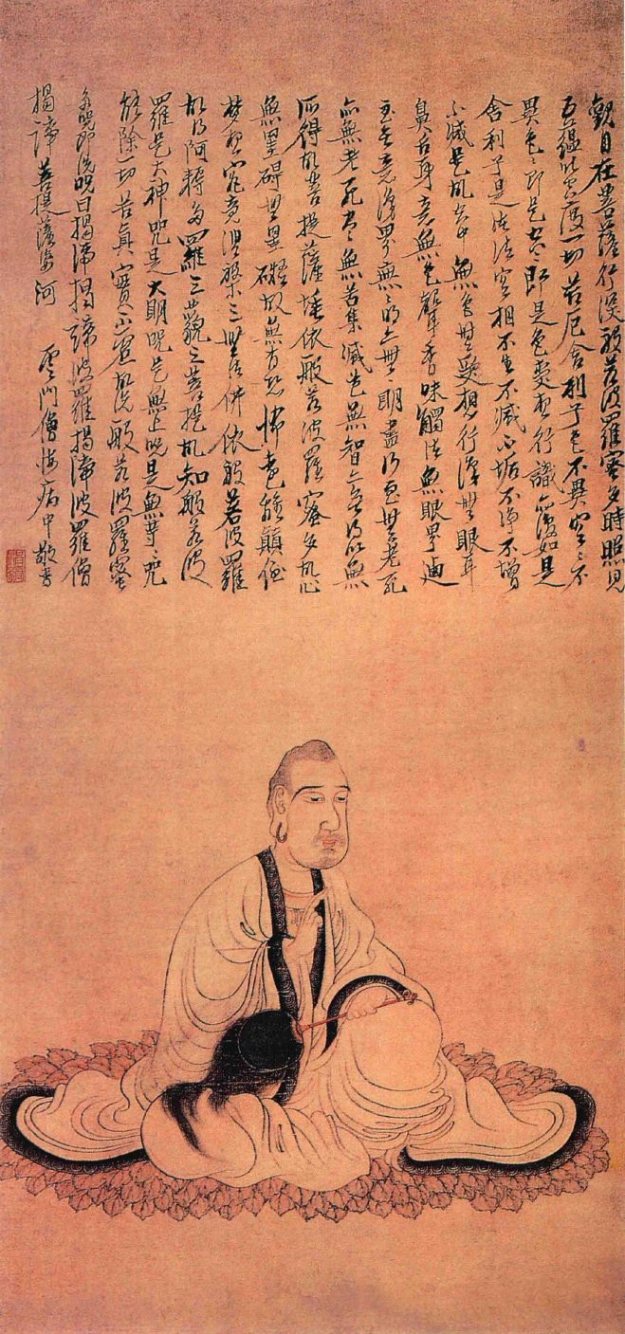 觀自在菩薩行深般若波羅蜜多時照見
五蘊皆空度一切苦厄舍利子色不異空〻不
異色〻即是空〻即是色受想行識亦復如是
舍利子是諸法空相不生不滅不垢不淨不增
不減是故空中無色無受想行識無眼耳
鼻舌身意無色聲香味觸法無眼界廼
至無意識界無〻明亦無〻明盡乃至無老死
亦無老死盡無苦集滅道無智亦無得以無
所得故菩提薩埵依般若波羅蜜多故心
無罣礙無罣礙故無有恐怖遠離顛倒
夢想究竟涅槃三世諸佛依般若波羅
故得阿耨多羅三藐三菩提故知般若波
羅是大神咒是大明咒是無上咒是無等〻咒
能除一切苦真實不虛故說般若波羅蜜
多咒即說咒曰揭諦揭諦波羅揭諦波羅僧
揭諦菩提薩婆訶 雲門僧悔病中敬書